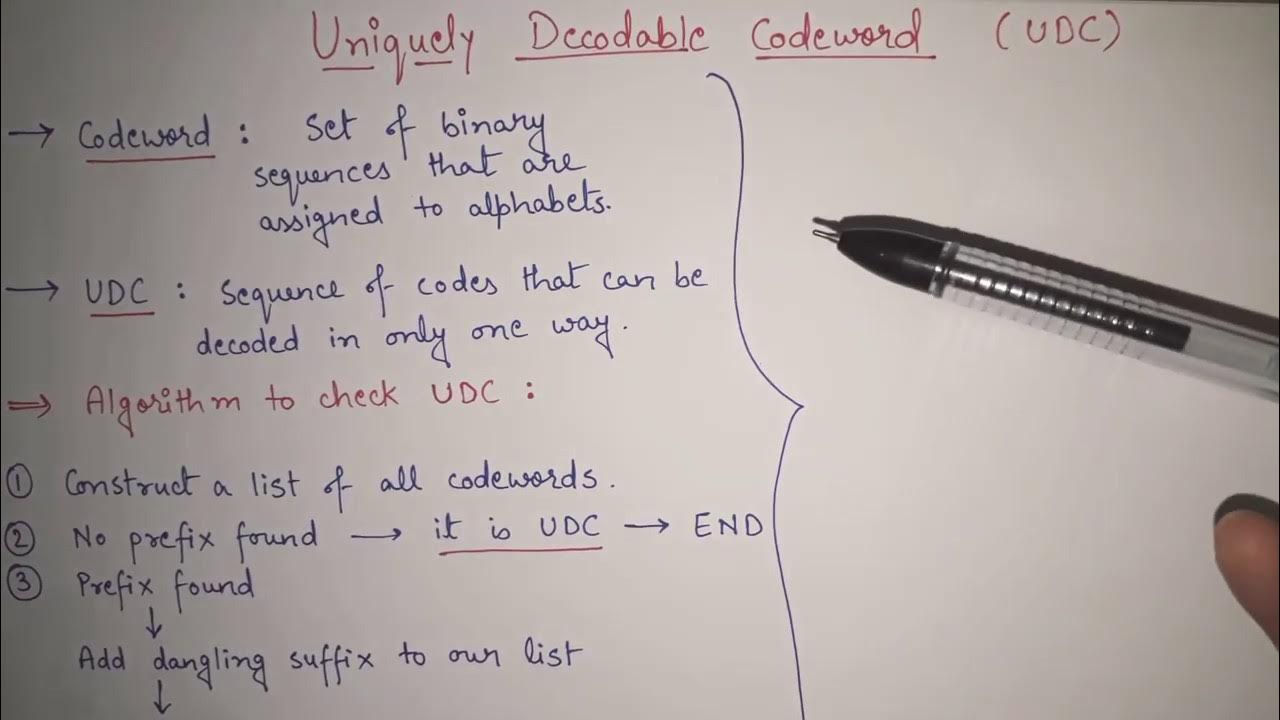 Uniquely Decodable Codeword (UDC)
→ Codeword : Set of binary
sequences that are
assigned to alphabets.
→ UDC : Sequence of codes that can be
decoded in only one way.
⇒ Algorithm to check UDC :
① Construct a list of all codewords.
② No prefix found → it is UDC → END
③ Prefix found
↓
Add dangling suffix to our list
↓